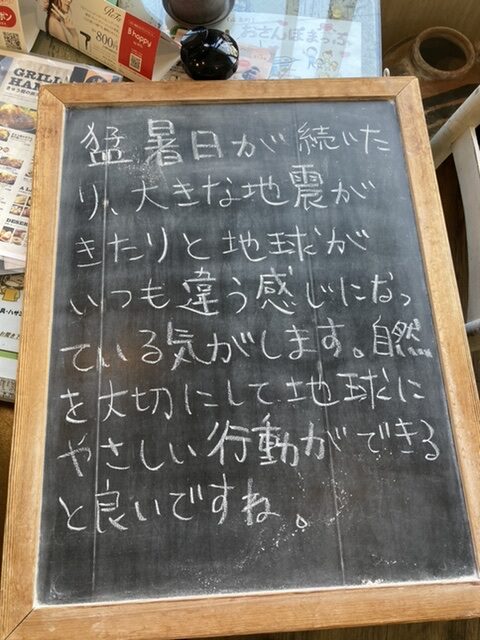 800
B happy
おさんぽまっぷ
GRILL
猛暑日が続いた
り、大きな地震が
きたりと地球が
いつも違う感じになっ
ている気がします。自然
を大切にして地球に
やさしい行動ができる
と良いですね。